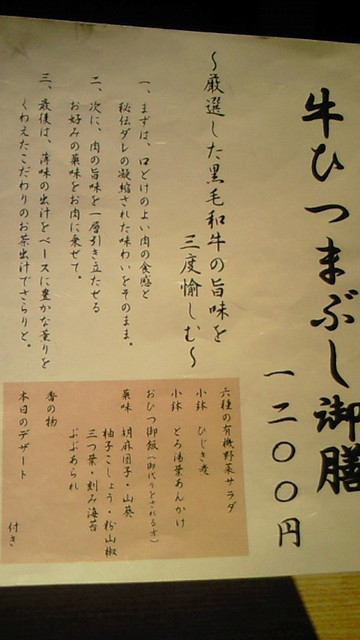 牛ひつまぶし御膳
一二〇〇円
～厳選した黒毛和牛の旨味を
三度愉しむ～
一、まずは、口どけのよい肉の食感と
秘伝ダレの凝縮された味わいをそのまま。
二、次に、肉の旨味を一層引き立たせる
お好みの薬味をお肉に乗せて。
三、最後は、薄味の出汁をベースに豊かな薫りを
くわえたこだわりのお茶出汁でさらりと。
六種の有機野菜サラダ
小鉢 ひじき煮
小鉢 とろ湯葉あんかけ
おひつ御飯(御代りとされる方)
薬味 胡麻団子・山葵
柚子こしょう・粉山椒
三つ葉・刻み海苔
ぶぶあられ
香の物
本日のデザート
付き